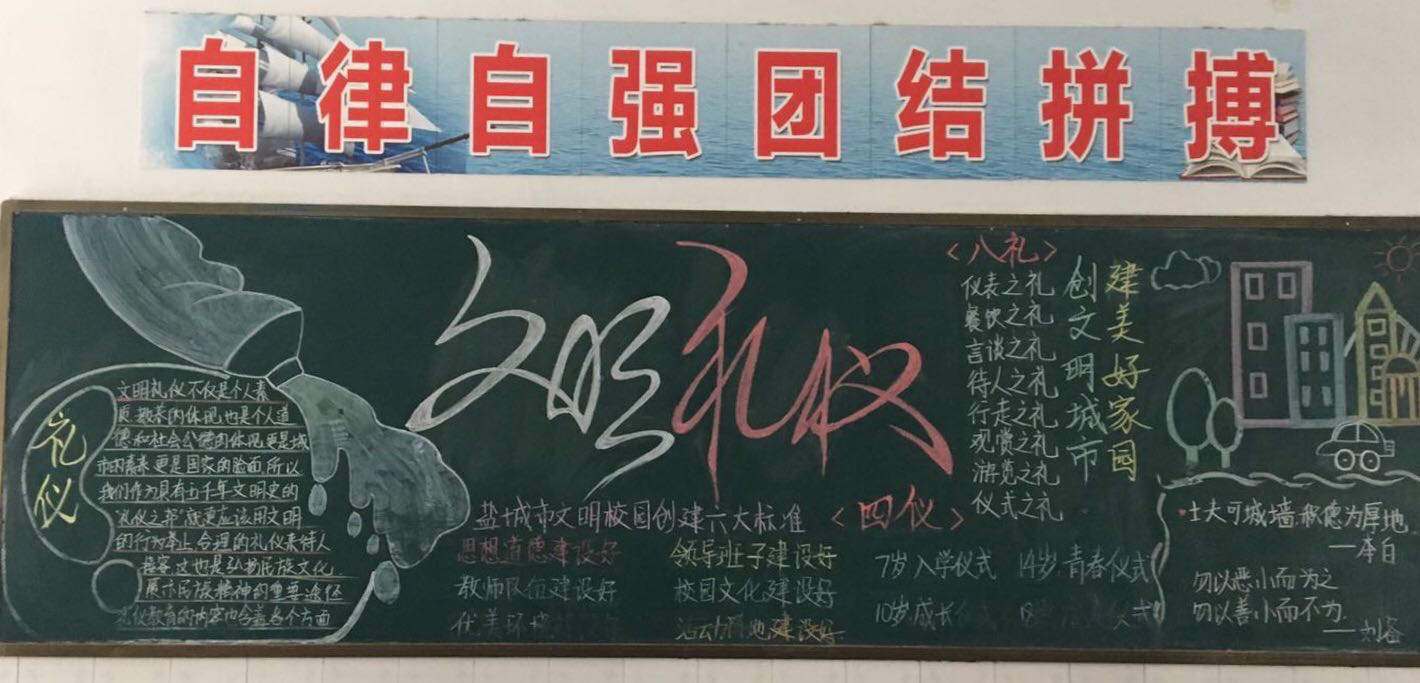 自律自强团结拼搏
礼仪
文明礼仪不仅是个人素
质、教养的体现也是个人道
德和社会公德的体现更是城
市的素养更是国家的脸面所以
我们作为具有五千年文明史的
"礼仪之邦"就更应该用文明
的行为举止合理的礼仪来待人
接客这也是弘扬民族文化
展示民族精神的重要途径
礼仪教育的内容也含盖各个方面
文明礼仪
盐城市文明校园创建六大标准
思想道德建设好 领导班子建设好
教师队伍建设好 校园文化建设好
优美环境 活动阵地建设好
<八礼>
仪表之礼
餐饮之礼
言谈之礼
待人之礼
行走之礼
观赏之礼
游览之礼
仪式之礼
创文明城市
建美好家园
<四仪>
7岁入学仪式 14岁青春仪式
10岁成长 仪式
土夫可城墙,积德为厚地
——李白
勿以恶小而为之
勿以善小而不为
——刘备